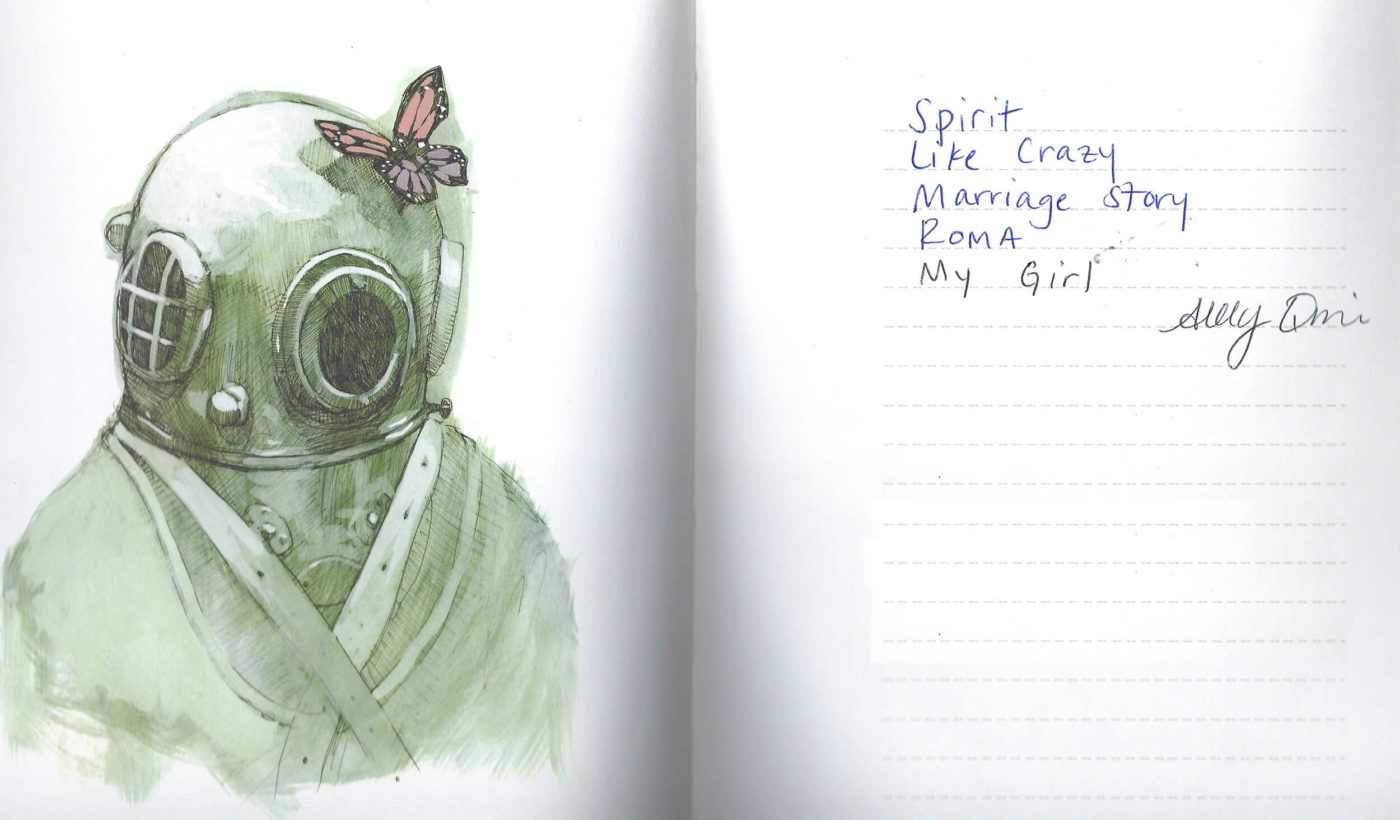 Spirit
Like Crazy
Marriage Story
ROMA
My Girl